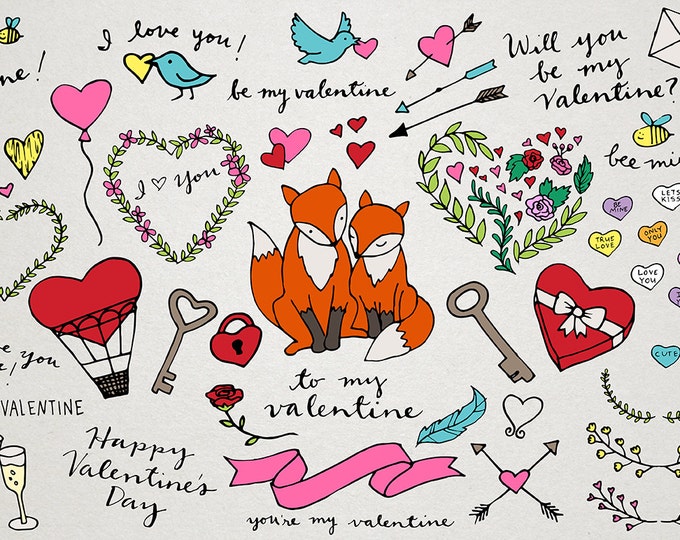 I love you!
be my valentine
Will you
be my
Valentine?
bee mi
I ♡ You
LETS
KISS
BE
MINE
TRUE
LOVE
ONLY
YOU
LOVE
YOU
CUTE
you
VALENTINE
to my
valentine
Happy
Valentine's
Day
you're my valentine